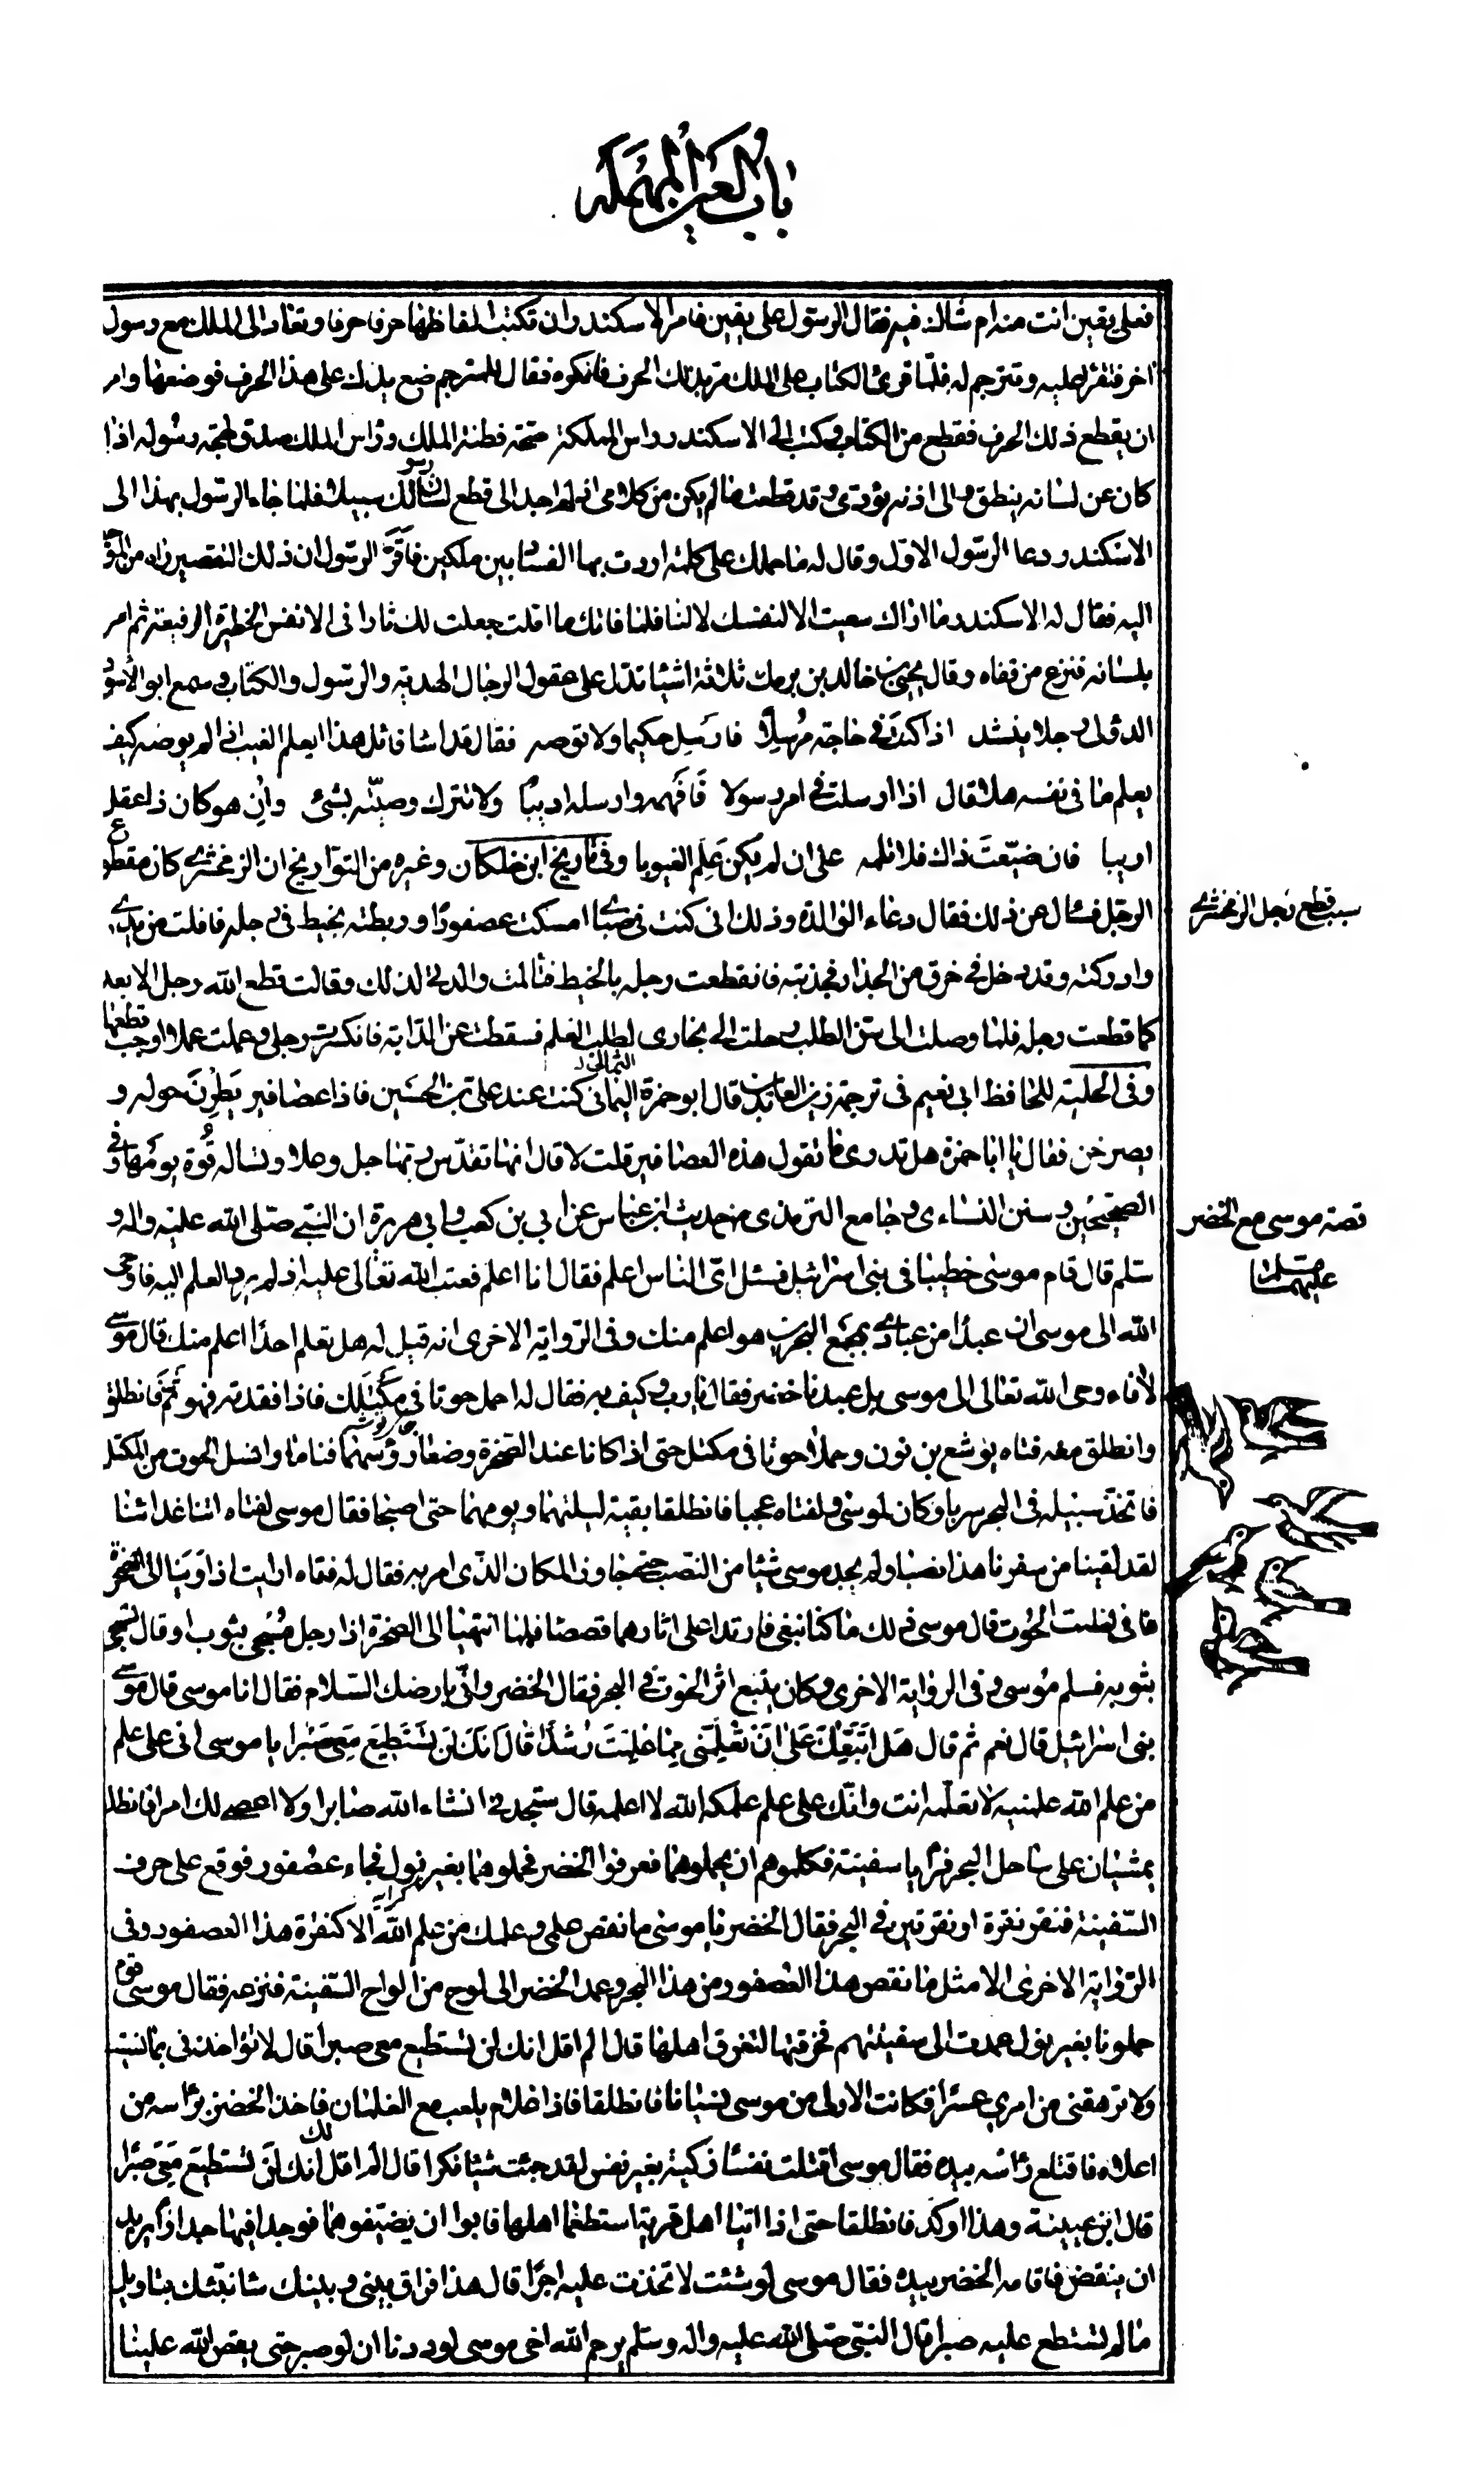 باب العين المهملة
فعلى يقين انت منه ام شاك فيه فقال الرسول على يقين فامر الاسكندر ان تكتب الفاظها حرفا حرفا وتعاد الى الملك مع رسول
اخر فتقرا عليه وتترجم له فلما قرئ الكتاب على الملك مر بذلك الحرف فانكره فقال للمترجم ضع يدك على هذا الحرف فوضعها وامر
ان يقطع ذلك الحرف فقطع من الكتاب وكتب الى الاسكندر راس المملكة صحة فطنة الملك وراس الملك صدق لهجة رسوله اذا
كان عن لسانه ينطق والى اذنه يؤدى وقد قطعت ما لم يكن من كلامى اذ لم اجد الى قطع لسان رسولك سبيلا فلما جاء الرسول بهذا الى
الاسكندر دعا الرسول الاول وقال له ما حملك على كلمة اردت بها الفساد بين ملكين فاقر الرسول ان ذلك لتقصير راه من الموجه
اليه فقال له الاسكندر فاراك سعيت الا لنفسك لا لنا فلما فاتك ما املت جعلت لك ثارا فى الانفس الخطيرة الرفيعة ثم امر
بلسانه فنزع من قفاه وقال يحيى بن خالد بن برمك ثلاثة اشيا تدل على عقول الرجال الهدية والرسول والكتاب وسمع ابو الاسود
الدؤلى رجلا ينشد اذا كنت فى حاجة مرسلا فارسل حكيما ولا توصه فقال قد اسا قائل هذا ايعلم الغيب اذا لم يوصه كيف
يعلم ما فى نفسه هلا قال اذا ارسلت فى امر رسولا فافهمه وارسله اديبا ولا تترك وصيته بشئ وان هو كان ذا عقل
اريبا فان ضيعت ذاك فلا تلمه على ان لم يكن علم الغيوبا وفى تاريخ ابن خلكان وغيره من التواريخ ان الزمخشرى كان مقطوع
الرجل فسال عن ذلك فقال دعاء الوالدة وذلك انى كنت فى صباى امسكت عصفورا وربطته بخيط فى رجله فافلت من يدى
وادركته وقد دخل فى خرق من الجدار فجذبته فانقطعت رجله بالخيط فتالمت والدتى لذلك وقالت قطع الله رجل الابعد
كما قطعت رجله فلما وصلت الى سن الطلب رحلت الى بخارى لطلب العلم فسقطت عن الدابة فانكسرت رجلى وعملت عملا اوجب قطعها
وفى الحلية للحافظ ابى نعيم فى ترجمة زين العابدين قال ابو حمزة اليمانى كنت عند على بن الحسين فاذا عصافير يطرن حوله و
يصرخن فقال يا ابا حمزة هل تدرى ما تقول هذه العصافير قلت لا قال انها تقدس ربها جل وعلا وتساله قوة يومها وفى
الصحيحين وسنن النساءى وجامع الترمذى من حديث ابن عباس عن ابى بن كعب وابى هريرة ان النبى صلى الله عليه واله و
سلم قال قام موسى خطيبا فى بنى اسرائيل فسئل اى الناس اعلم فقال انا اعلم فعتب الله تعالى عليه اذ لم يرد العلم اليه فاوحى
الله الى موسى ان عبدا من عبادى بمجمع البحرين هو اعلم منك وفى الرواية الاخرى انه قيل له هل تعلم احدا اعلم منك قال موسى
لا فاءوحى الله تعالى الى موسى بل عبدنا خضر فقال يا رب وكيف به فقال له احمل حوتا فى مكتلك فاذا فقدته فهو ثم فانطلق
وانطلق معه فتاه يوشع بن نون وحملا حوتا فى مكتل حتى اذا كانا عند الصخرة وضعا رؤسهما فناما وانسل الحوت من المكتل
فاتخذ سبيله فى البحر سربا وكان لموسى ولفتاه عجبا فانطلقا بقية ليلتهما ويومهما حتى اصبحا فقال موسى لفتاه اتنا غداءنا
لقد لقينا من سفرنا هذا نصبا ولم يجد موسى شيئا من النصب حتى جاوز المكان الذى امر به فقال له فتاه ارايت اذ اوينا الى الصخرة
فانى نسيت الحوت قال موسى ذلك ما كنا نبغى فارتدا على اثارهما قصصا فلما انتهيا الى الصخرة اذا رجل مسجى بثوب او قال تسجى
بثوبه فسلم موسى وفى الرواية الاخرى وكان يتبع اثر الحوت فى البحر فقال الخضر وانى بارضك السلام فقال انا موسى قال موسى
بنى اسرائيل قال نعم ثم قال هل اتبعك على ان تعلمنى مما علمت رشدا قال انك لن تستطيع معى صبرا يا موسى انى على علم
من علم الله علمنيه لا تعلمه انت وانك على علم علمكه الله لا اعلمه قال ستجدنى انشاء الله صابرا ولا اعصى لك امرا فانطلقا
يمشيان على ساحل البحر فمرا بسفينة فكلموهم ان يحملوهما فعرفوا الخضر فحملوهما بغير نول فجاء عصفور فوقع على حرف
السفينة فنقر نقرة او نقرتين فى البحر فقال الخضر يا موسى ما نقص علمى وعلمك من علم الله الا كنقرة هذا العصفور وفى
الرواية الاخرى الا مثل ما نقص هذا العصفور من هذا البحر وعمد الخضر الى لوح من الواح السفينة فنزعه فقال موسى قوم
حملونا بغير نول عمدت الى سفينتهم فخرقتها لتغرق اهلها قال الم اقل انك لن تستطيع معى صبرا قال لا تؤاخذنى بما نسيت
ولا ترهقنى من امرى عسرا فكانت الاولى من موسى نسيانا فانطلقا فاذا غلام يلعب مع الغلمان فاخذ الخضر براسه من
اعلاه فاقتلع راسه بيده فقال موسى اقتلت نفسا زكية بغير نفس لقد جئت شيئا نكرا قال الم اقل لك انك لن تستطيع معى صبرا
قال ابن عيينة وهذا اوكد فانطلقا حتى اذا اتيا اهل قرية استطعما اهلها فابوا ان يضيفوهما فوجدا فيها جدارا يريد
ان ينقض فاقامه الخضر بيده فقال موسى لو شئت لاتخذت عليه اجرا قال هذا فراق بينى وبينك سانبئك بتاويل
ما لم تستطع عليه صبرا قال النبى صلى الله عليه واله وسلم يرحم الله اخى موسى لوددنا ان لو صبر حتى يقص الله علينا
سبب قطع رجل الزمخشرى
قصة موسى مع الخضر
عليهما السلام